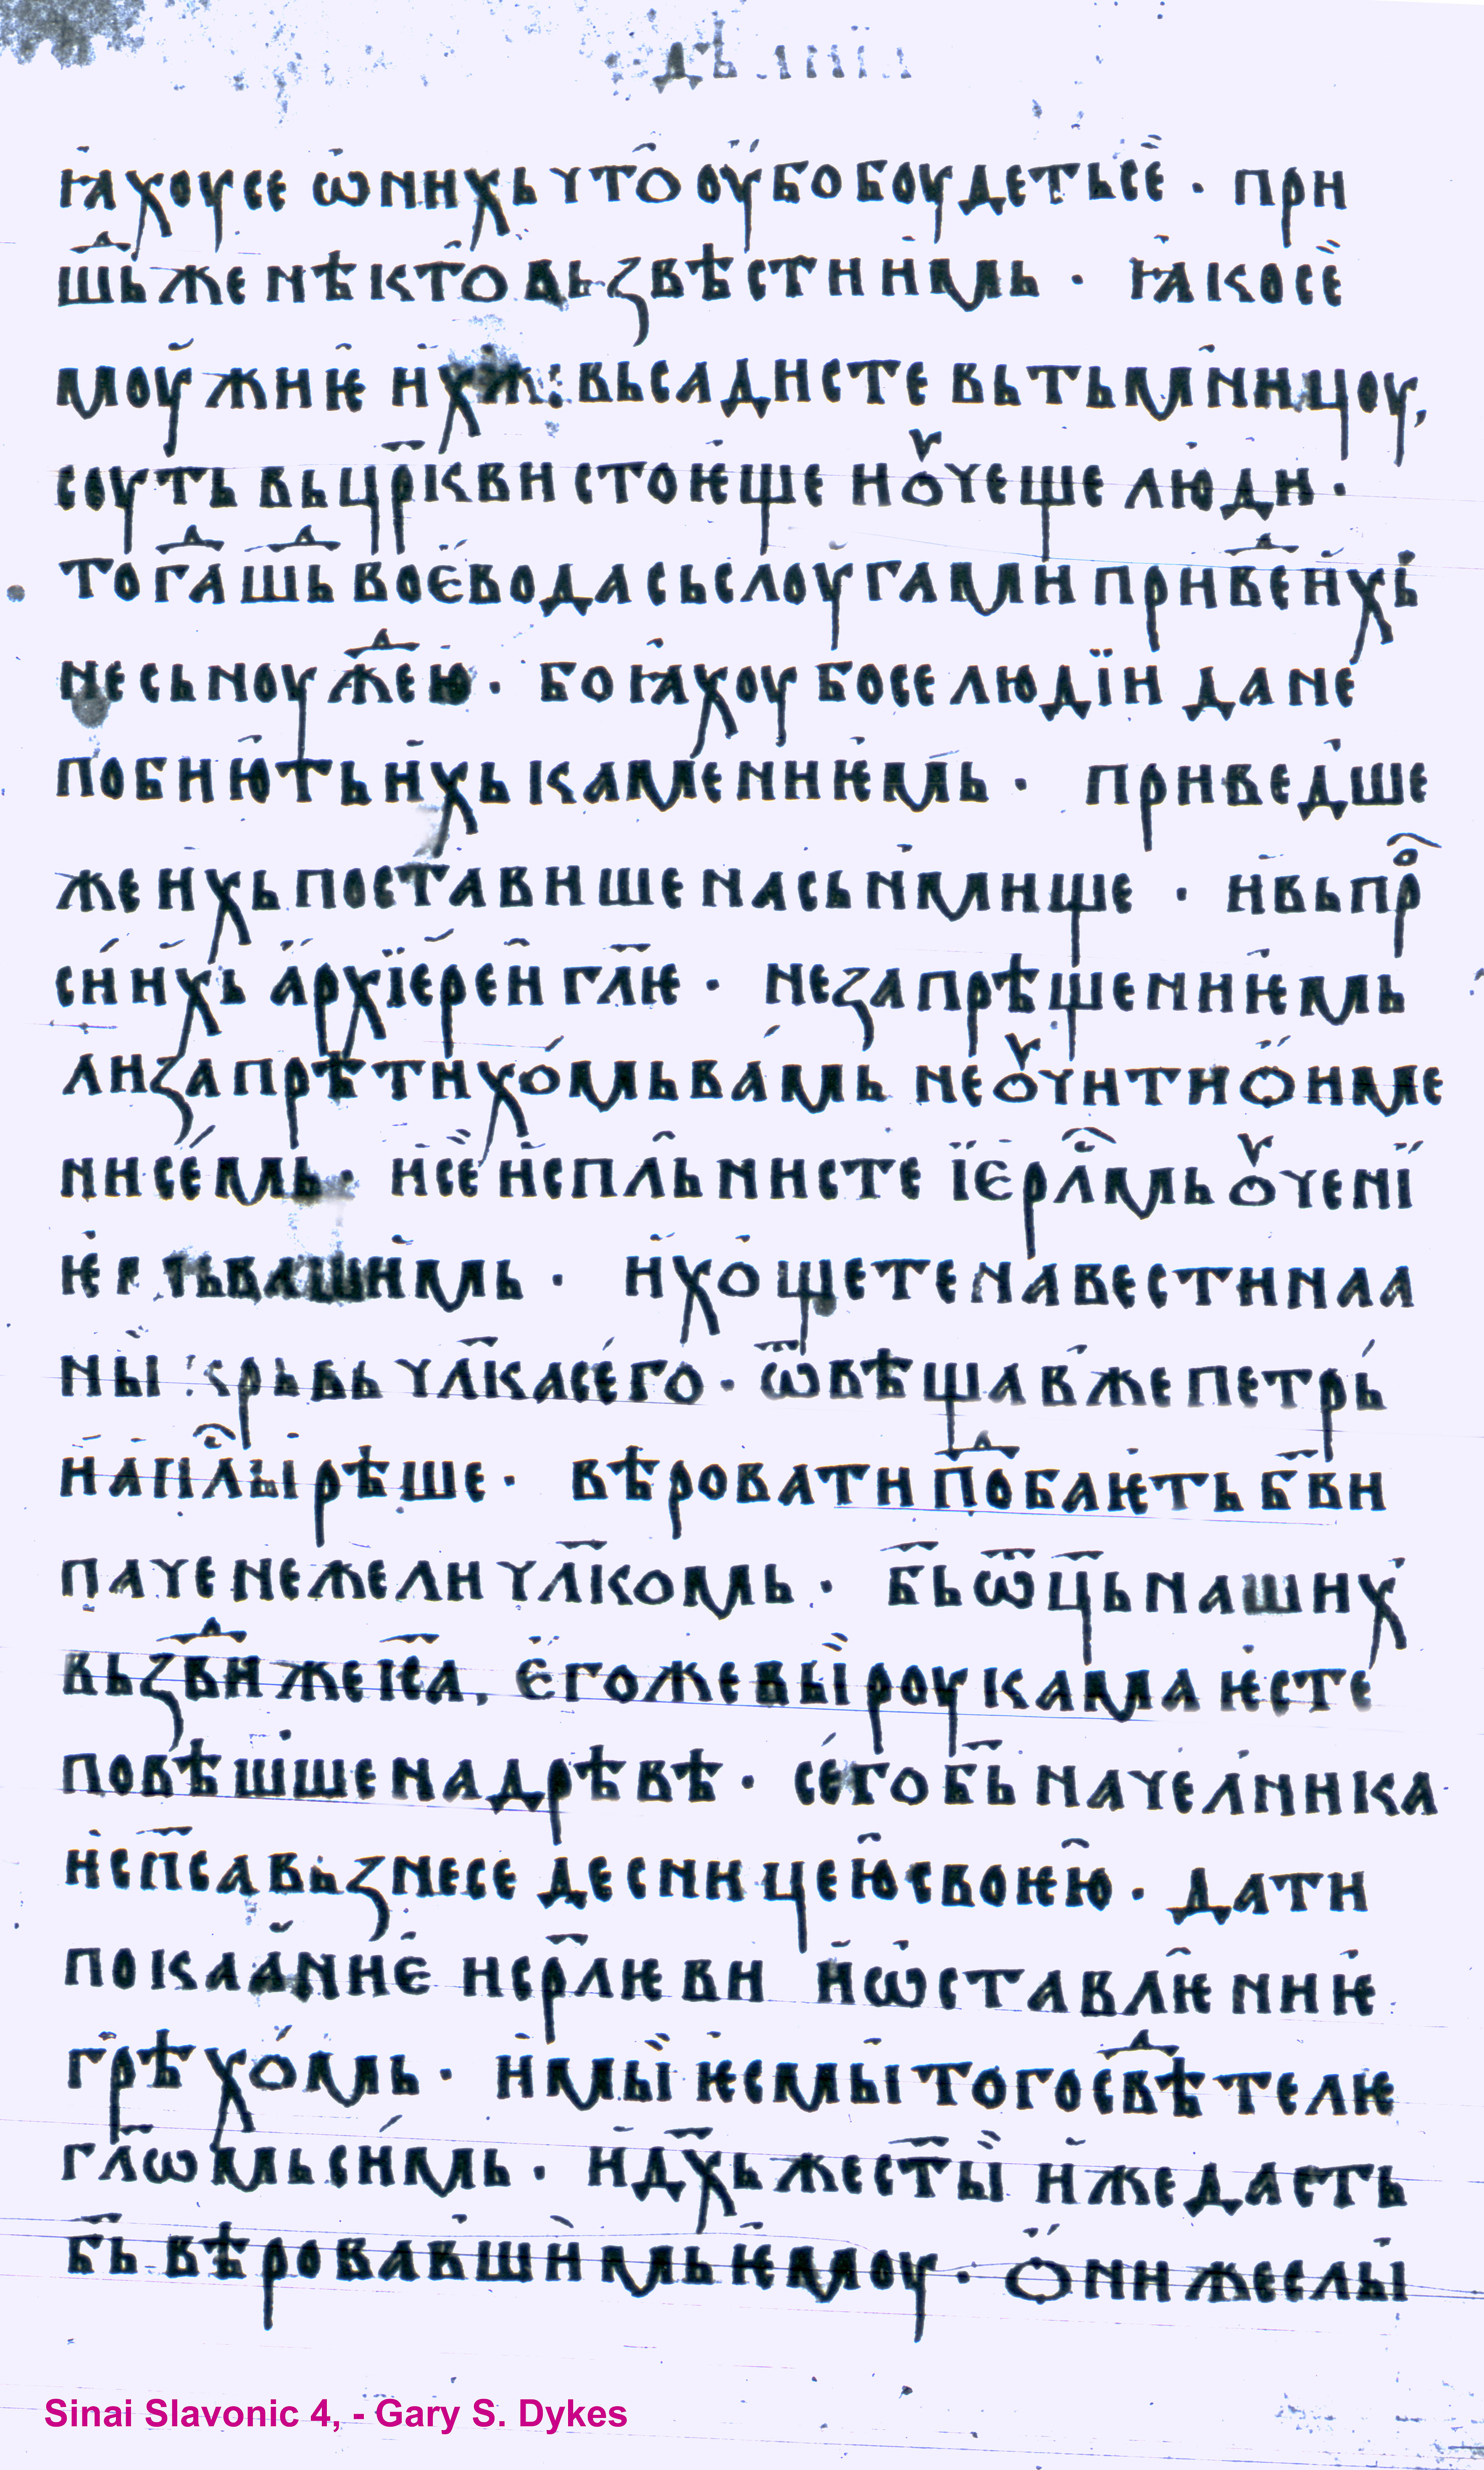 ꙗхоусе ѡнихь что оубо боудетьсе · при
шⷣь же нѣкто вьзвѣсти имь · ꙗко се
моужиѥ ихже вьсадисте вьтьмницоу,
соуть вьцр҃кви стоѥще и ꙋчеще люди ·
тогⷣа шⷣь воѥвода сьслоугами привⷣе ихь
не сьноужⷣею · боꙗхоу бо се людїи да не
побиють ихь камениѥмь · приведше
же ихь поставише насьнмище · и вьпрⷪ
си ихь архїереи гл҃ѥ · не запрѣщениѥмь
ли запрѣтихомь вамь не ꙋчити ѻ име
ни семь · и се испльнисте їерл҃мь ꙋченї
вашимь · и хощете навести на а
ны крьвь чл҃ка сего · ѿвѣщав же петрь
и апл҃ы рѣше · вѣровати пⷣобаѥть б҃ви
паче нежели чл҃комь · б҃ь ѿц҃ь наших
вьзвⷣиже іс҃а, его же вы роукама ѥсте
повѣшше на дрѣвѣ · сего б҃ь начелника
и сп҃са вьзнесе десницею своѥю · дати
покаание исрл҃ѥви и ѡставлѥниѥ
грѣхомь · и мы ѥсмы того свⷣѣтелѥ
гл҃ѡмь симь · и дх҃ь же ст҃ы иже дасть
б҃ь вѣровавшимь ѥмоу · ѻни же слы
Sinai Slavonic 4, - Gary S. Dykes